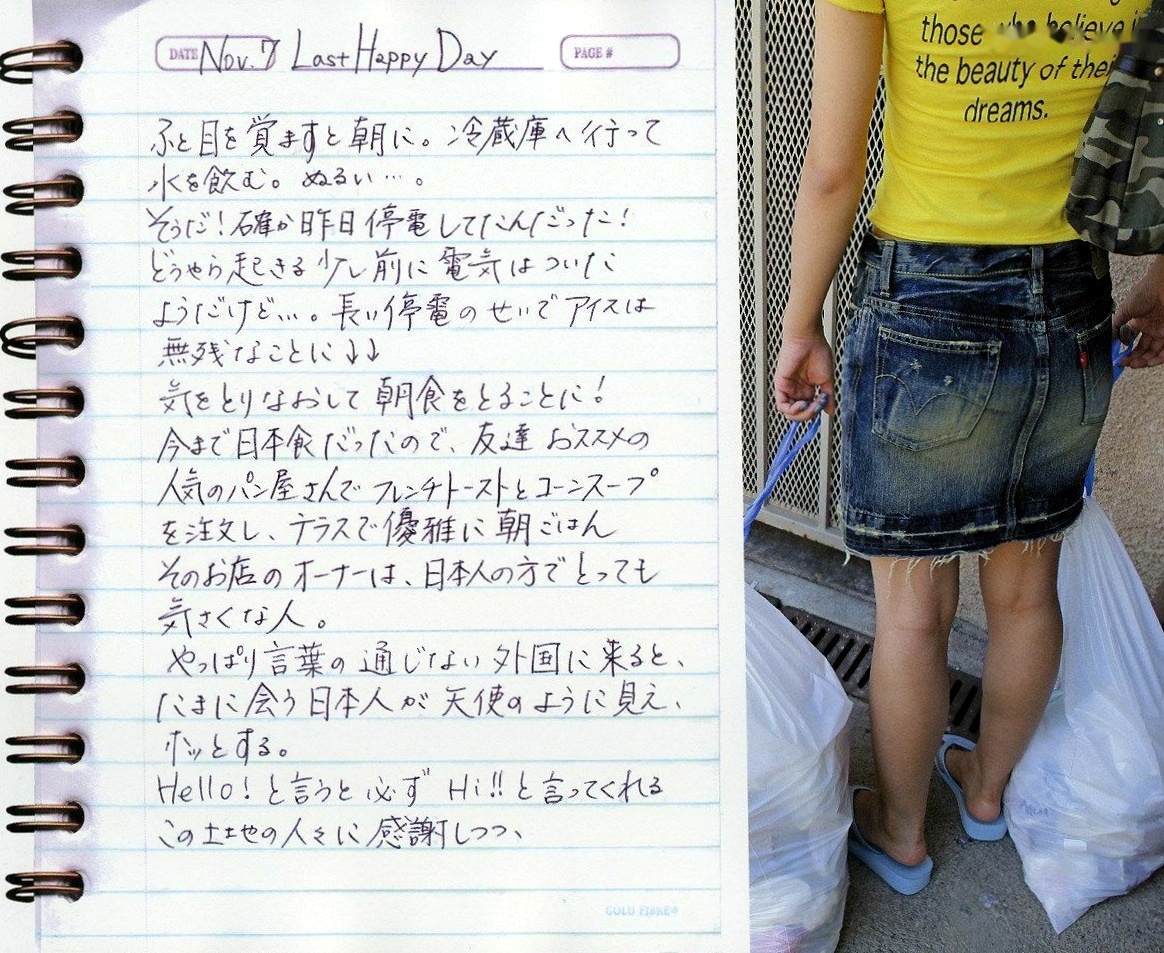 DATE Nov.7 Last Happy Day PAGE #
ふと目を覚ますと朝に。冷蔵庫へ行って
水を飲む。ぬるい…。
そうだ！確か昨日停電してたんだった！
どうやら起きる少し前に電気はついた
ようだけど…。長い停電のせいでアイスは
無残なことに↓↓
気をとりなおして朝食をとることに！
今まで日本食だったので、友達おススメの
人気のパン屋さんでフレンチトーストとコーンスープ
を注文し、テラスで優雅に朝ごはん
そのお店のオーナーは、日本人の方でとっても
気さくな人。
やっぱり言葉の通じない外国に来ると、
たまに会う日本人が天使のように見え、
ホッとする。
Hello！と言うと必ずHi!!と言ってくれる
この土地の人々に感謝しつつ、
GOLD FIBRE®
those who believe
the beauty of their
dreams.